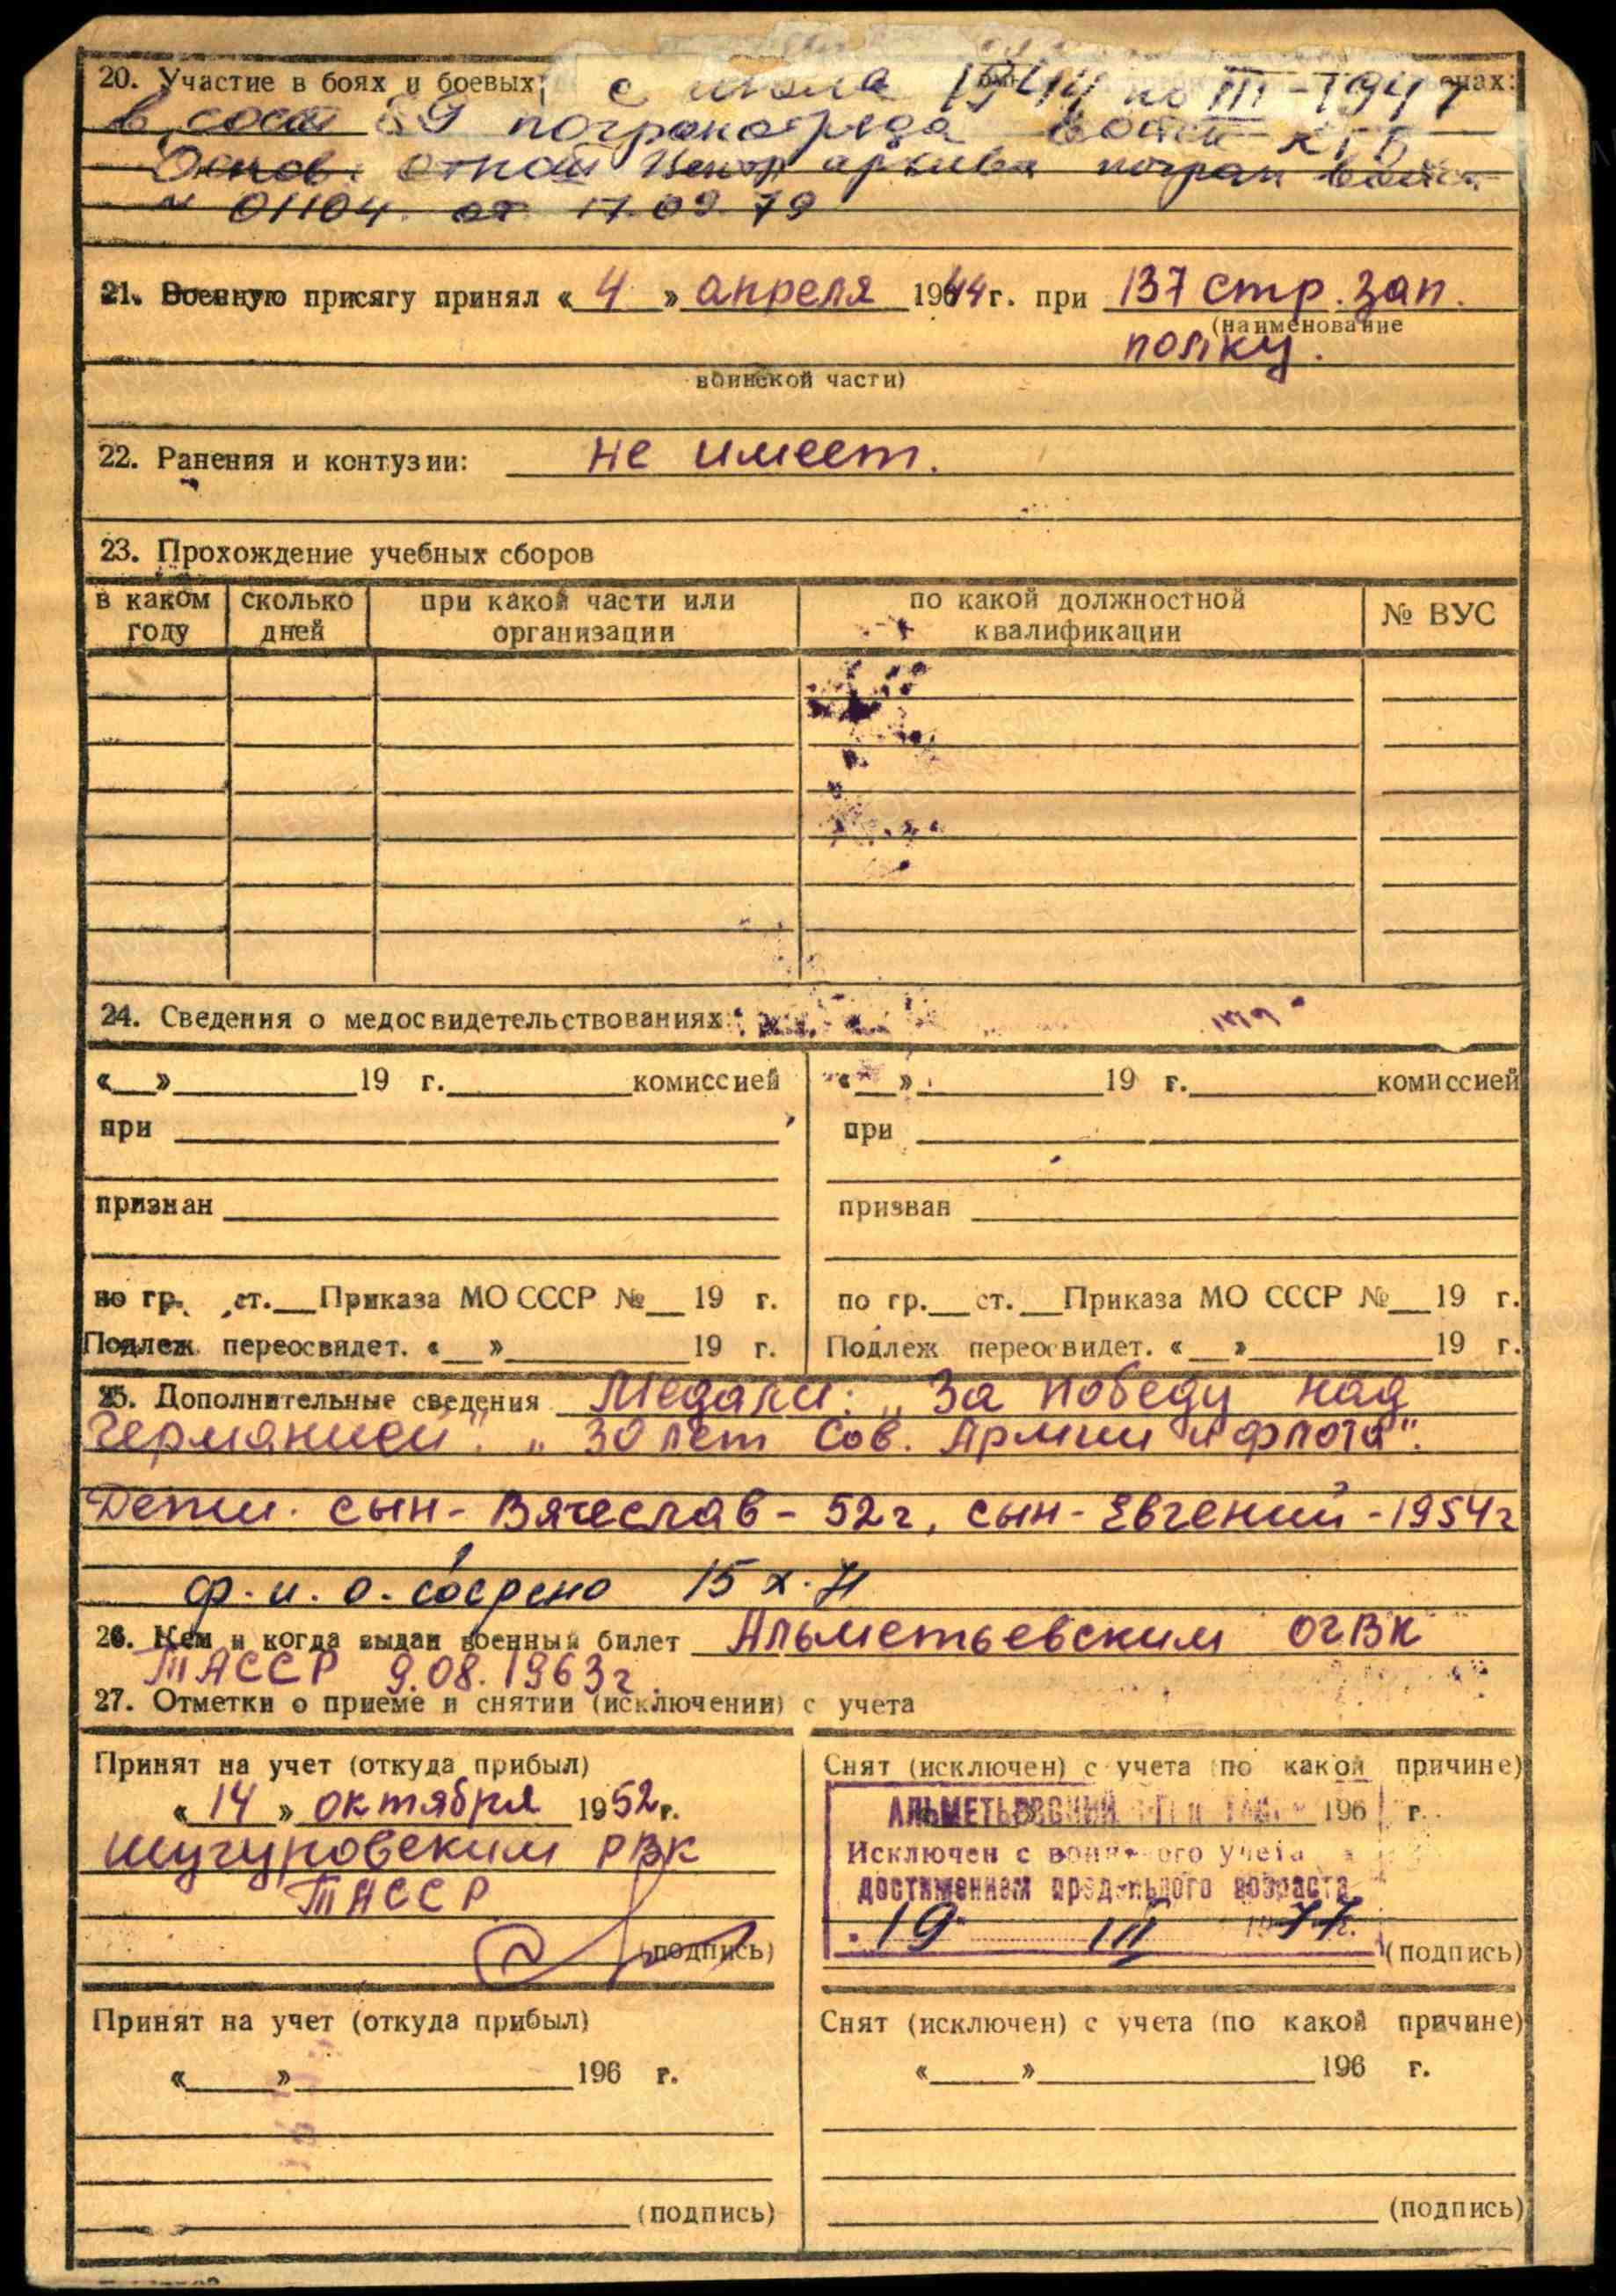 20. Участие в боях и боевых с июля 1944 по III-1947
в сост 89 погранотряда войск КГБ
Основ. отнош Центр архива погран войск
N 01104 от 17.09.79
21. Военную присягу принял « 4 » апреля 1944 г. при 137 стр. зап.
(наименование
полку.
воинской части)
22. Ранения и контузии: не имеет.
23. Прохождение учебных сборов
в каком году сколько дней при какой части или организации по какой должностной квалификации № ВУС
24. Сведения о медосвидетельствованиях:
«__»________19 г.________комиссией «__»________19 г.________комиссией
при при
признан признан
по гр. ст.__Приказа МО СССР №__19 г. по гр.__ст.__Приказа МО СССР №__19 г.
Подлеж переосвидет. «__»________19 г. Подлеж переосвидет. «__»________19 г.
25. Дополнительные сведения Медали: „За победу над
Германией". „30 лет Сов. Армии и флота".
Дети. сын - Вячеслав - 52г, сын - Евгений - 1954г
ф.и.о. сверено 15 X. 71
26. Кем и когда выдан военный билет Альметьевским ОГВК
ТАССР 9.08.1963г.
27. Отметки о приеме и снятии (исключении) с учета
Принят на учет (откуда прибыл) Снят (исключен) с учета (по какой причине)
« 14 » октября 1952 г. АЛЬМЕТЬЕВСКИЙ 196 г.
Шугуровским РВК Исключен с воинского учета
ТАССР достижением предельного возраста
19 III 1977 г.
(подпись) (подпись)
Принят на учет (откуда прибыл) Снят (исключен) с учета (по какой причине)
«____»________196 г. «____»________196 г.
(подпись) (подпись)